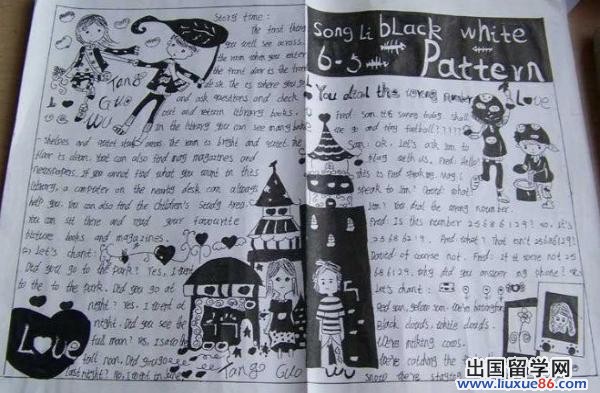 Story time:
The first thing
you will see across
the room when you enter
the front door is the front
desk. the is where you go
and ask questions and check
out and return library books.
In the library you can see many book
shelves and several study areas. The room is bright and
floor is clean. You can also find mag magazines and
newspapers. If you cannot find what you want in this
library, a computer on the nearby desk can always
help you. You can also find the children's Study Area.
You can sit there and read your favourite
picture books and magazines.
Let's chant:
Did you go to the park? Yes, I went
to the to the park. Did you go at
night? Yes, I went at
night. Did you see the
full moon? Yes, I saw the
full moon. Did you go
last night? No, I went on
Tango
Guo
WU
Love
Tango Guo
WU
Song Li black white
6-5 Pattern
You dial the wrong number
Love
Fred: Sam. it's sunny today. shall
we go and play football????
Sam: ok. Let's ask Ian to
play with us. Fred: Hello!
this is Fred speaking. May I
speak to Ian? David: what
Ian? You dial the wrong number.
Fred: Is this number 25686129? No, it's
25686219. Fred: what? That isn't 25686129!
David: of course not. Fred: if it were not 256
86129, why did you answer my phone?
Let's chant:
Red sun, yellow sun. We're
Black clouds, white clouds.
We're making cows.
We're catching the
Snow we're
出国留学网
www.liuxue86.com